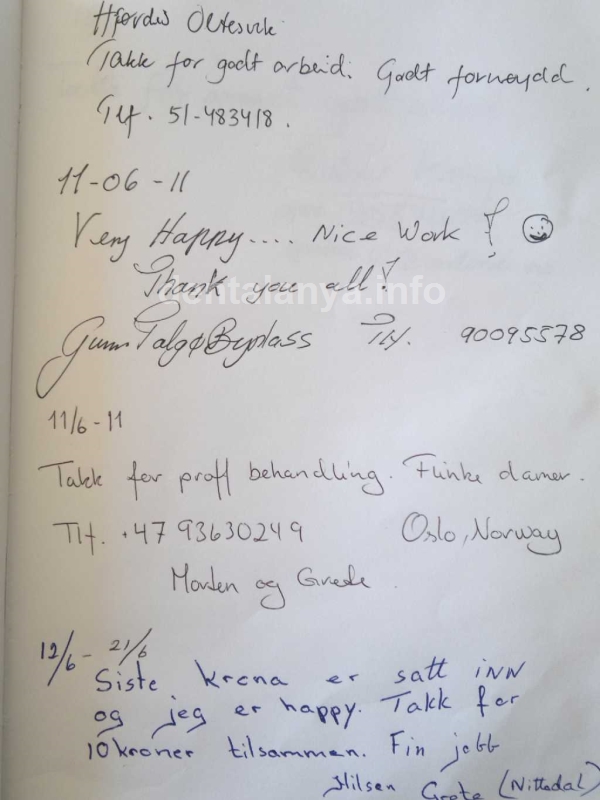 Oltesvik
Takk for godt arbeid. Godt fornøydd.
Tlf. 51-483418.
11-06-11
Very Happy.... Nice Work!
Thank you all!
dentalanya.info
Gunn Talgø Tlf. 90095578
11/6-11
Takk for proff behandling. Flinke damer.
Tlf. +47 93630249 Oslo, Norway
Morten og Grete.
12/6 - 21/6
Siste krona er satt inn
og jeg er happy. Takk for
10 kroner tilsammen. Fin jobb
Hilsen Grete (Nittedal)